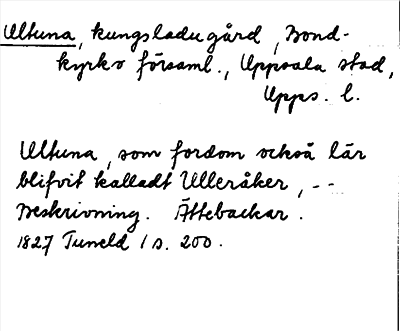 Ultuna, kungsladugård, Bond-
kyrko församl., Uppsala stad,
Upps. l.
Ultuna, som fordom också lär
blifvit kalladt Ulleråker, --
Beskrivning. Ättebackar.
1827 Tuneld 1 s. 200.